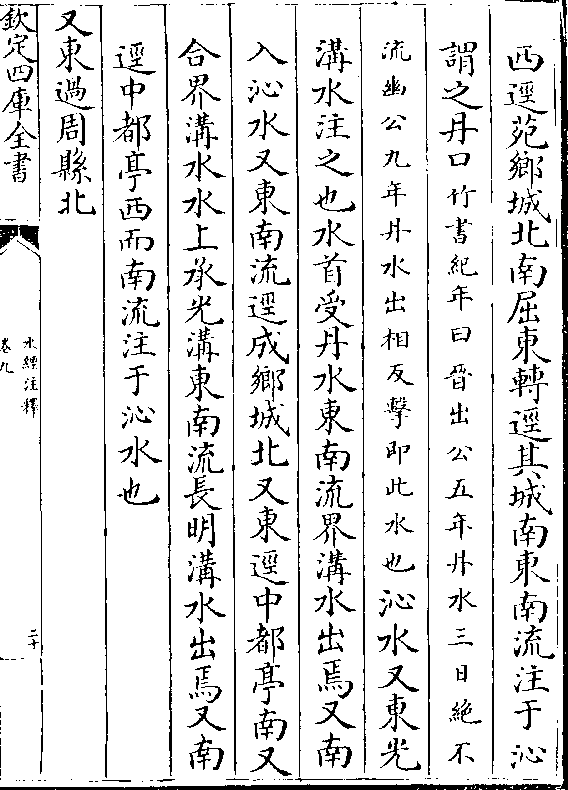 西逕苑鄉城北南屈東轉逕其城南東南流注于沁
謂之丹口竹書紀年曰晉出公五年丹水三日絕不
流幽公九年丹水出相反擊即此水也沁水又東光
溝水注之也水首受丹水東南流界溝水出焉又南
入沁水又東南流逕成鄉城北又東逕中都亭南又
合界溝水水上承光溝東南流長明溝水出焉又南
逕中都亭西而南流注于沁水也
又東過周縣北
欽定四庫全書
水經注釋
卷九
二十